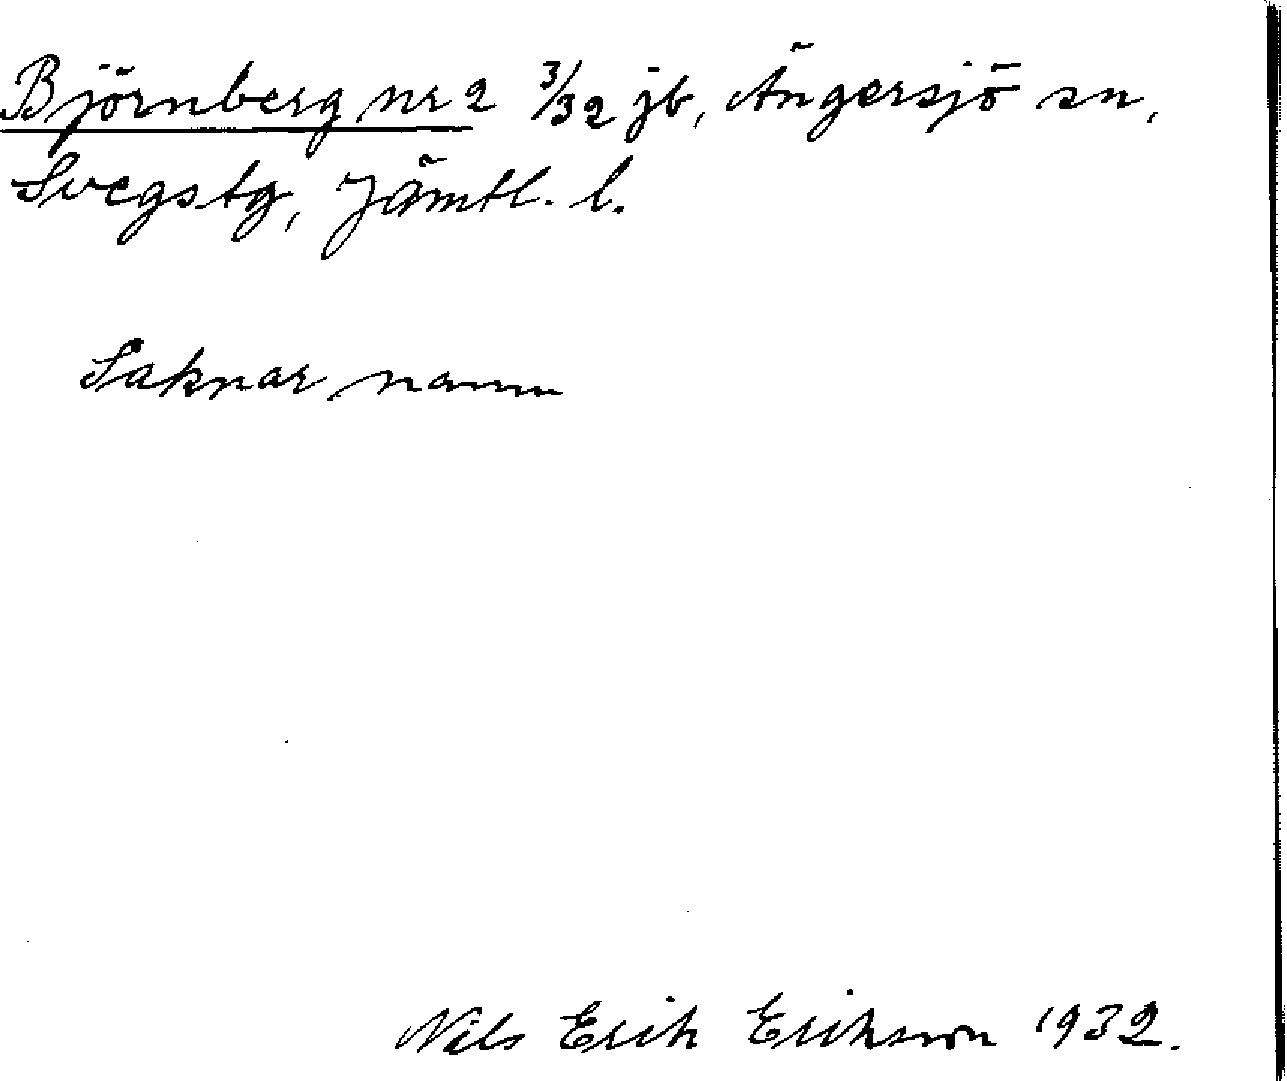 Björnberg nr 2 3/32 jb, Ängersjö sn,
Svegs tg, Jämtl. l.
Saknar namn
Nils Erik Erikson 1932.